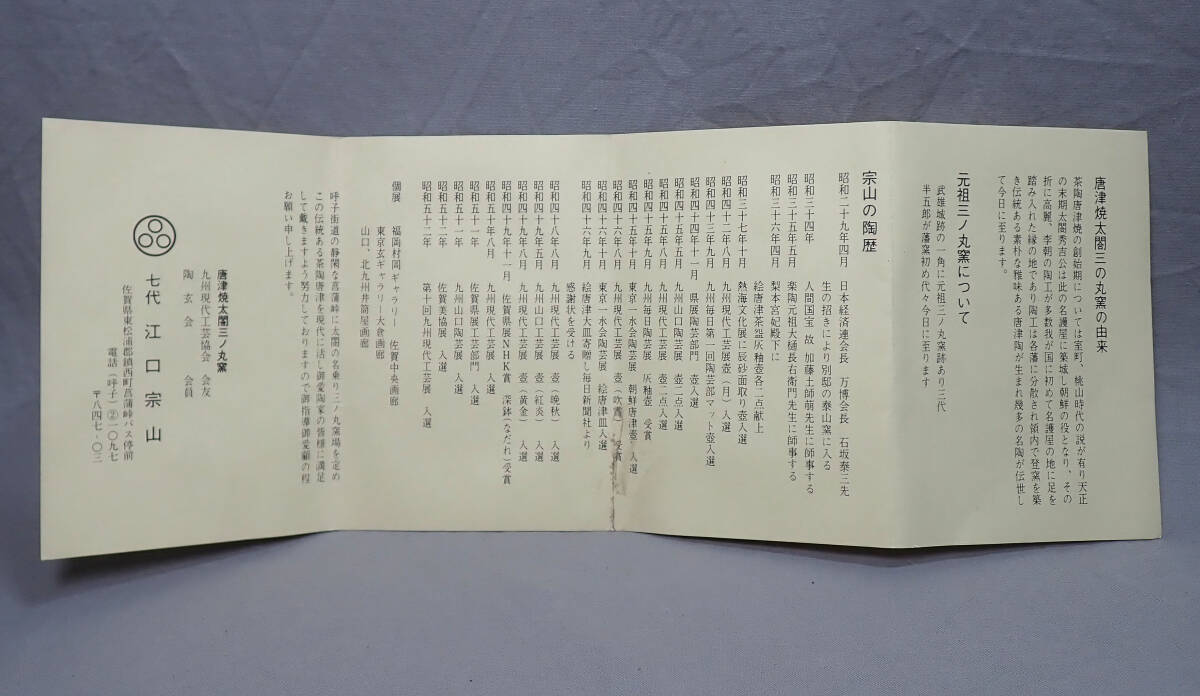 唐津焼太閤三の丸窯の由来
茶陶唐津焼の創始期については室町、桃山時代の説が有り天正
の末期太閤秀吉公は此の名護屋に築城し朝鮮の役となり、その
折に高麗、李朝の陶工が多数我が国に初めて名護屋の地に足を
踏み入れた縁の地であり陶工は各藩に分散され領内で登窯を築
き伝統ある素朴な雅味ある唐津陶が生まれ幾多の名陶が伝世し
て今日に至ります。
元祖三ノ丸窯について
武雄城跡の一角に元祖三ノ丸窯跡あり三代
半五郎が藩窯初め代々今日に至ります
宗山の陶歴
昭和二十九年四月 日本経済連会長 万博会長 石坂泰三先
生の招きにより別邸の泰山窯に入る
昭和三十四年 人間国宝 故 加藤土師萌先生に師事する
昭和三十五年五月 楽陶元祖大樋長右衛門先生に師事する
昭和三十六年四月 梨本宮妃殿下に
絵唐津茶盌灰釉壺各二点献上
昭和三十七年十月 熱海文化展に辰砂面取り壺入選
昭和四十二年八月 九州現代工芸展壺(月)入選
昭和四十三年九月 九州毎日第一回陶芸部マット壺入選
昭和四十四年十一月 県展陶芸部門 壺入選
昭和四十五年五月 九州山口陶芸展 壺二点入選
昭和四十五年八月 九州現代工芸展 壺二点入選
昭和四十五年九月 九州毎日陶芸展 灰釉壺 受賞
昭和四十五年十月 東京一水会陶芸展 朝鮮唐津壺 入選
昭和四十六年八月 九州現代工芸展 壺(吹雪) 受賞
昭和四十六年十月 東京一水会陶芸展 絵唐津皿入選
昭和四十六年十月 絵唐津大皿寄贈し毎日新聞社より
感謝状を受ける
昭和四十八年八月 九州現代工芸展 壺(晩秋) 入選
昭和四十九年五月 九州山口工芸展 壺(紅炎) 入選
昭和四十九年八月 九州現代工芸展 壺(黄金) 入選
昭和四十九年十一月 佐賀県展NHK賞 深鉢(なだれ)受賞
昭和五十年八月 九州現代工芸展 入選
昭和五十一年 佐賀県展工芸部門 入選
昭和五十一年 九州山口陶芸展 入選
昭和五十二年 佐賀美協展 入選
昭和五十二年 第十回九州現代工芸展 入選
個展 福岡村岡ギャラリー 佐賀中央画廊
東京玄ギャラリー大倉画廊
山口、北九州井筒屋画廊
呼子街道の静閑な菖蒲峠に太閤の名乗り三ノ丸窯場を定め
この伝統ある茶陶唐津を現代に活し御愛陶家の皆様に満足
して戴きますよう努力しておりますので御指導御愛顧の程
お願い申し上げます。
唐津焼太閤三ノ丸窯
九州現代工芸協会 会友
陶玄会 会員
七代 江口宗山
佐賀県東松浦郡鎮西町菖蒲峠バス停前
電話(呼子)②一〇九七
〒八四七-〇三